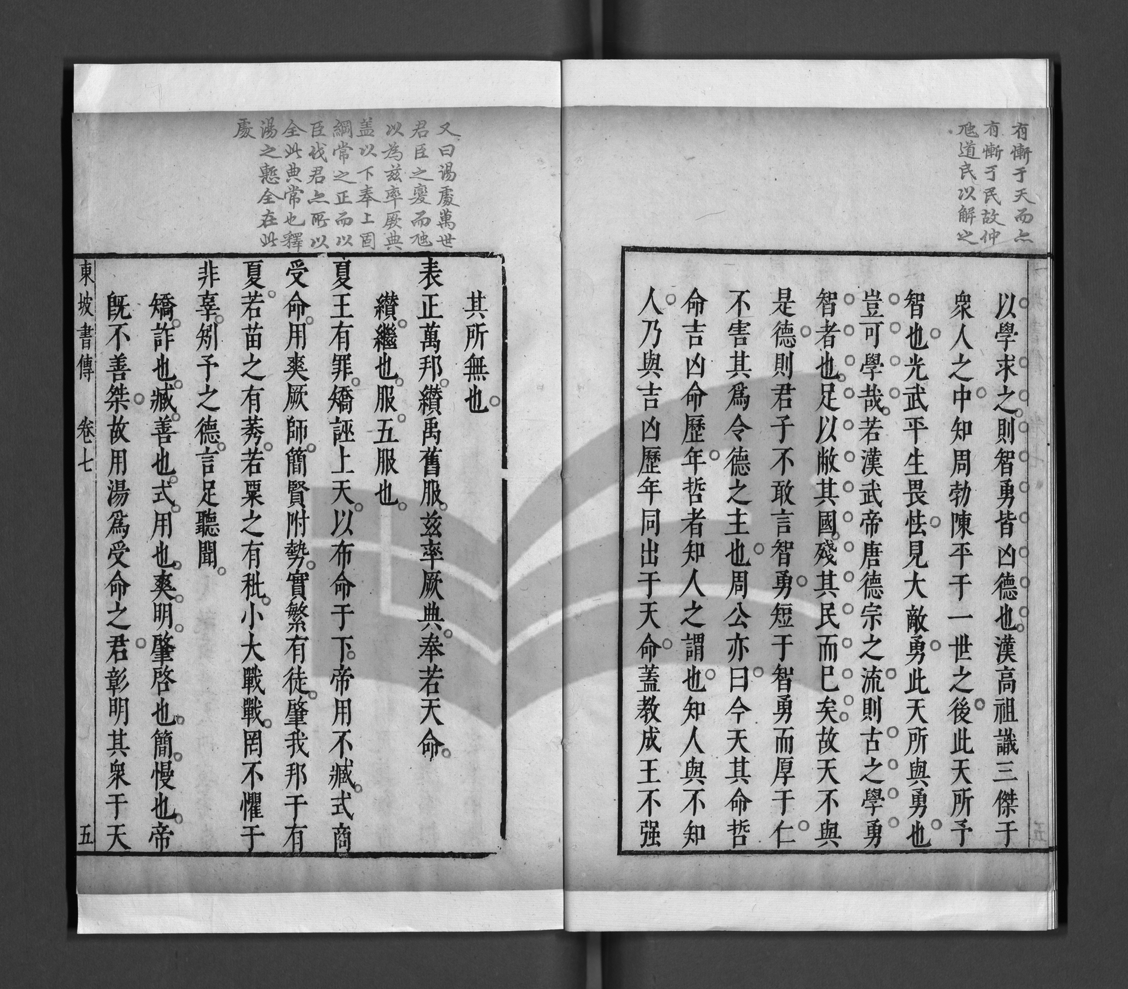 有慚于天而亦
有慚于民故仲
虺道民以解之
以學求之則智勇皆凶德也漢高祖識三傑于
衆人之中知周勃陳平于一世之後此天所予
智也光武平生畏怯見大敵勇此天所與勇也
豈可學哉若漢武帝唐德宗之流則古之學勇
智者也足以敝其國殘其民而已矣故天不與
是德則君子不敢言智勇短于智勇而厚于仁
不害其爲令德之主也周公亦曰今天其命哲
命吉凶命歷年哲者知人之謂也知人與不知
人乃與吉凶歷年同出于天命蓋教成王不强
又曰湯處萬世
君臣之變而虺
以為兹率厥典
盖以下奉上固
綱常之正而以
臣伐君亦所以
全此典常也釋
湯之慙全在此
處
其所無也
表正萬邦纘禹舊服兹率厥典奉若天命
纘繼也服五服也
夏王有罪矯誣上天以布命于下帝用不臧式商
受命用爽厥師簡賢附勢實繁有徒肇我邦于有
夏若苗之有莠若粟之有秕小大戰戰罔不懼于
非辜矧予之德言足聽聞
矯詐也臧善也式用也爽明肇啓也簡慢也帝
旣不善桀故用湯爲受命之君彰明其衆于天
東坡書傳　卷七　五